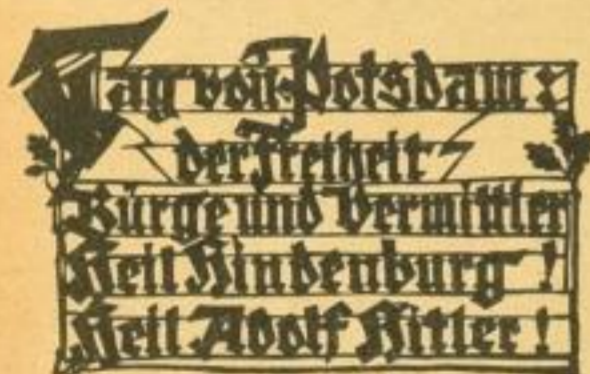 Tag von Potsdam:
der Freiheit
Bürge und Vermittler
Heil Hindenburg!
Heil Adolf Hitler!